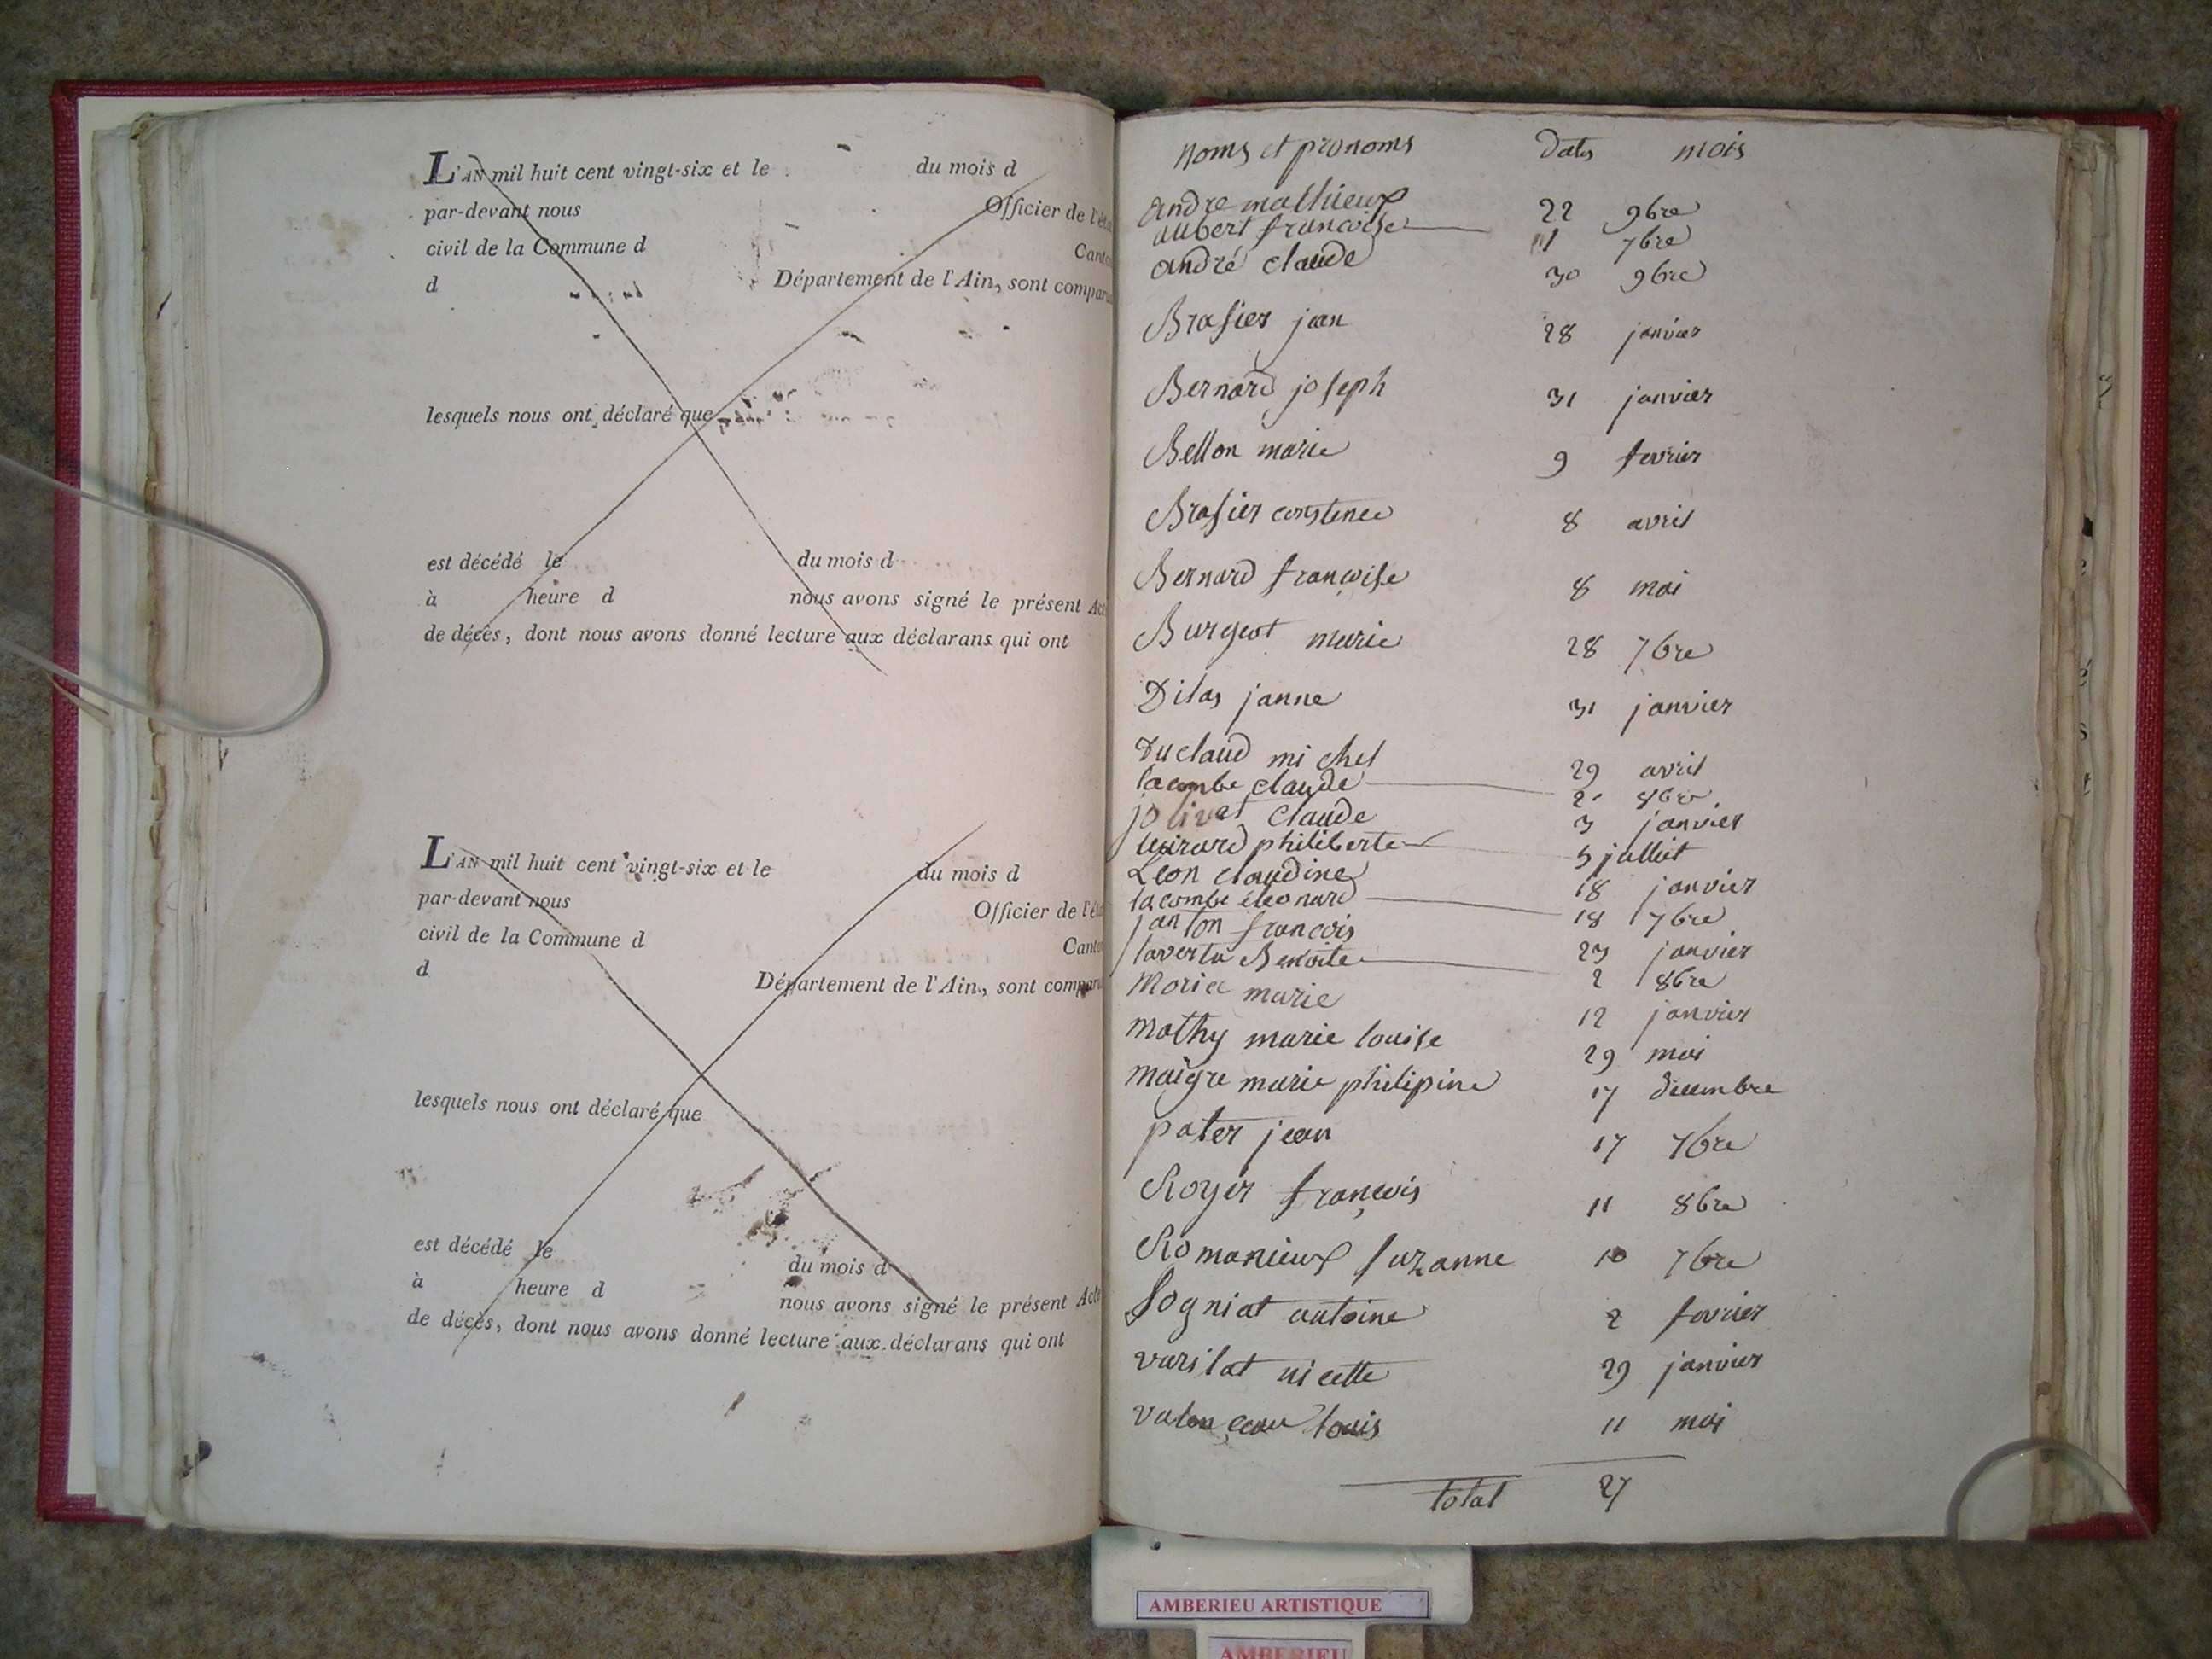 L'AN mil huit cent vingt-six et le du mois d
par-devant nous Officier de l'ét
civil de la Commune d Canto
d Département de l'Ain, sont compar
lesquels nous ont déclaré que
est décédé le du mois d
à heure d nous avons signé le présent Act
de décès, dont nous avons donné lecture aux déclarans qui ont
L'AN mil huit cent vingt-six et le du mois d
par-devant nous Officier de l'ét
civil de la Commune d Canto
d Département de l'Ain, sont compar
lesquels nous ont déclaré que
est décédé le du mois d
à heure d nous avons signé le présent Acte
de décès, dont nous avons donné lecture aux déclarans qui ont
noms et pronoms dates mois
andre mathieux 22 9bre
aubert francoise 11 7bre
andré claude 30 9bre
Brasier jean 28 janvier
Bernard joseph 31 janvier
Bellon marie 9 fevrier
Brasier constence 8 avril
Bernard françoise 8 mai
Burgeot marie 28 7bre
Dilas janne 31 janvier
Duclaud michel 29 avril
lacombe claude 8bre
jolivet claude 3 janvier
philiberte 5 julliet
Léon claudine 18 janvier
lacombe éléonard 18 7bre
janton francois 23 janvier
lavertu Benoite 2 8bre
marie 12 janvier
mathy marie louise 29 mai
maigre marie philipine 17 decembre
pater jean 17 7bre
Royer françois 11 8bre
Romanieux suzanne 10 7bre
Sogniat antoine 2 fevrier
varilat nicette 29 janvier
louis 11 mai
total 27
AMBERIEU ARTISTIQUE
AMBERIEU